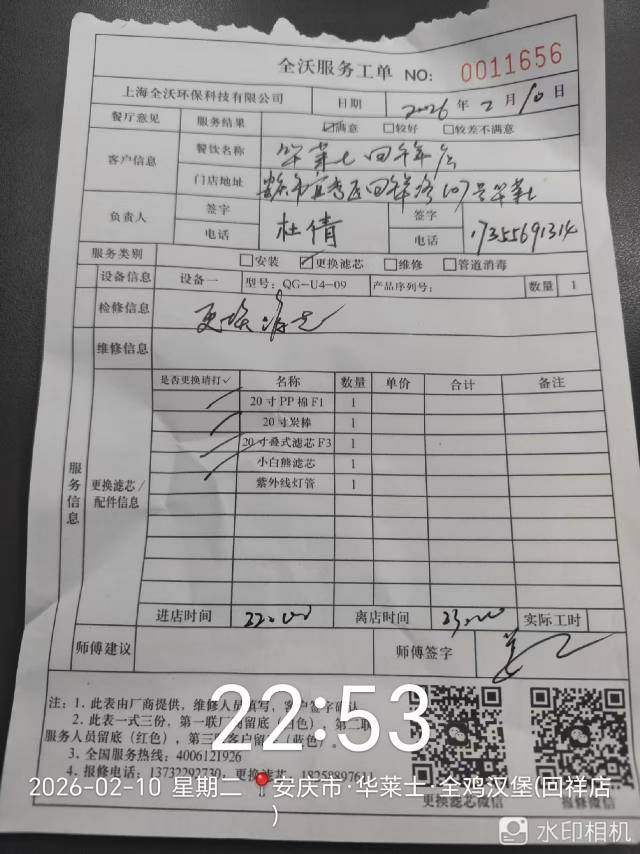 全沃服务工单 NO: 0011656
上海全沃环保科技有限公司 日期 2026年2月10日
餐厅意见 服务结果 ☑满意 □较好 □较差不满意
客户信息 餐饮名称 华莱士回祥店
门店地址 宜秀区回祥路107号华莱士
负责人 签字 杜倩 签字
电话 电话 17355691314
服务类别 □安装 ☑更换滤芯 □维修 □管道消毒
设备信息 设备一 型号: QG-U4-09 产品序列号: 数量 1
检修信息 更换滤芯
维修信息
是否更换请打✓ 名称 数量 单价 合计 备注
20寸PP棉F1 1
20寸炭棒 1
20寸叠式滤芯F3 1
小白熊滤芯 1
紫外线灯管 1
服务信息
更换滤芯/配件信息
进店时间 22:00 离店时间 23:00 实际工时
师傅建议 师傅签字
注: 1. 此表由厂商提供, 维修人员填写, 客户签字确认。
2. 此表一式三份, 第一联厂商留底(白色), 第二联
服务人员留底(红色), 第三联客户留底(蓝色)。
3. 全国服务热线: 4006121926
4. 报修电话: 13732292730, 更换滤芯: 18258897611
更换滤芯微信 报修微信
22:53
2026-02-10 星期二 安庆市·华莱士·全鸡汉堡(回祥店
)
水印相机